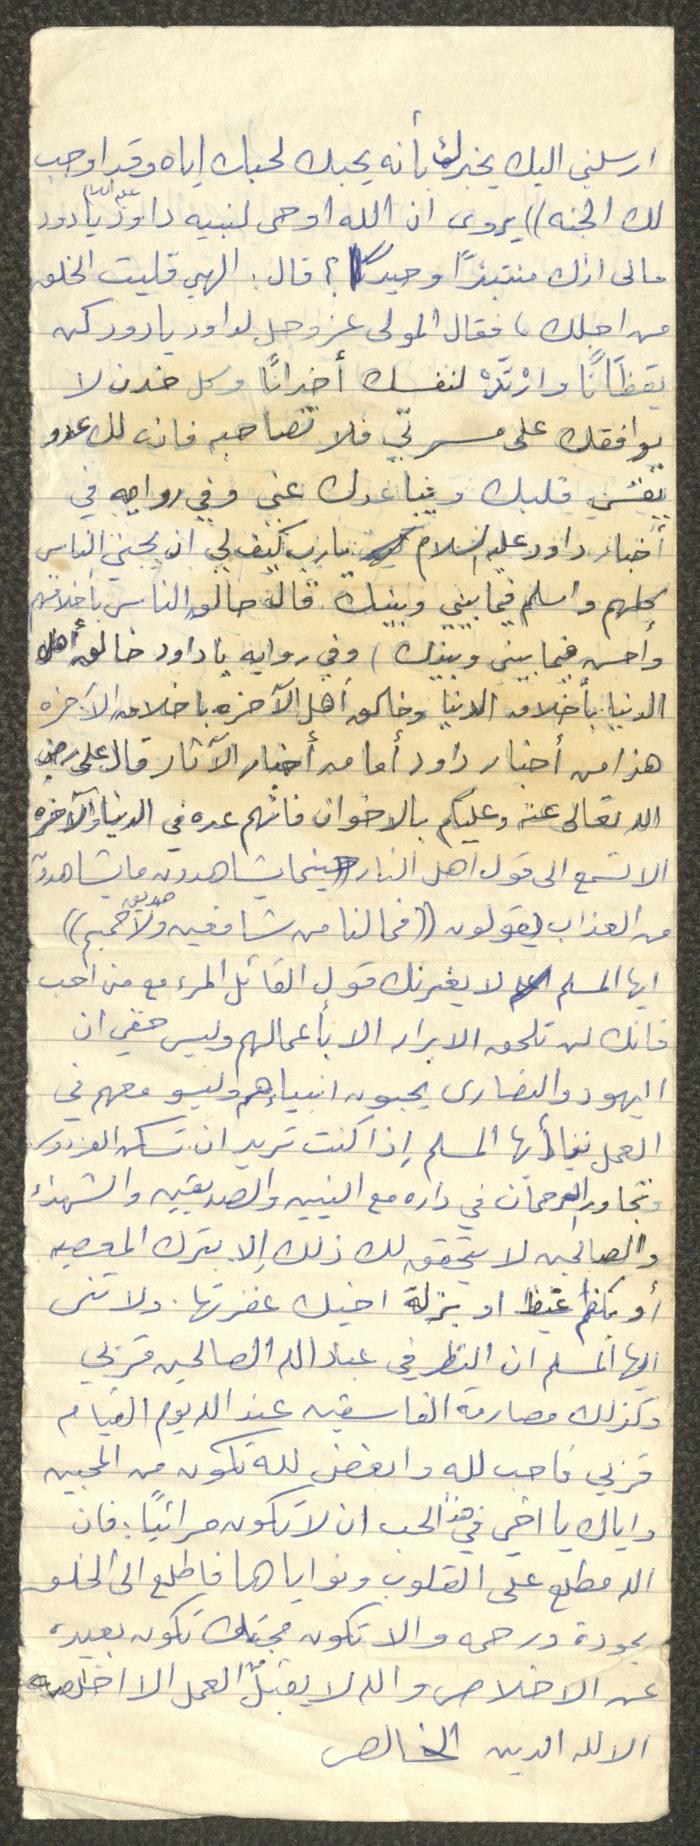 ارسلني اليك يخبرك بأنه يحبك لحبك إياه وقد اوجب
لك الجنه)) يروى ان الله اوحى لنبيه داود عليه السلام يا داود
مالي اراك منتبذًا وحيدًا؟ قال: الهي قليت الخلق
من اجلك، فقال المولى عز وجل لداود يا داود كن
يقظانًا وارتَدْ لنفسك أخدانًا وكل خدن لا
يوافقك على مسرتي فلا تصاحبه فانه لك عدو
يقسّي قلبك ويباعدك عني وفي روايه في
أخبار داود عليه السلام يارب كيف لي ان يحبني الناس
كلهم واسلم فيما بيني وبينك قال خالق الناس بأخلاقهم
وأحسن فيما بيني وبينك) وفي روايه يا داود خالق أهل
الدنيا بأخلاق الدنيا وخالق أهل الآخره باخلاق الآخره
هذا من أخبار داود أما من أخبار الآثار قال علي رضي
الله تعالى عنه وعليكم بالاخوان فانهم عده في الدنيا والآخره
الا تسمع الى قول اهل النار حينما يشاهدون ما يشاهدون
من العذاب يقولون ((فما لنا من شافعين ولا صديق حميم))
ايها المسلم لا يغرنك قول القائل المرء مع من احب
فانك لن تلحق الابرار الا بأعمالهم وليس حقي ان
اليهود والنصارى يحبون انبياءهم وليسو معهم في
العمل أيها المسلم إذا كنت تريد ان تسكن الفردوس
وتجاور الرحمان في داره مع النبيين والصديقين والشهداء
والصالحين لا يتحقق لك ذلك إلا بترك المعصيه
أو بكظم غيظ او بزلة اخيك غفرتها. ولا تنسى
ايها المسلم ان النظر في عباد الله الصالحين قربى
وكذلك مصارمة الفاسقين عند الله يوم القيامه
قربى فاحب لله وابغض لله تكون من المحبين
واياك يا اخي في هذا الحب ان لا تكون مرائيًا. فان
الله مطلع على القلوب ونواياها فاطلع الى الخلق
بجودة ورحمه والا تكون محبتك تكون بعيده
عن الاخلاص والله لا يقبل من العمل الا اخلصه
الا لله الدين الخالص